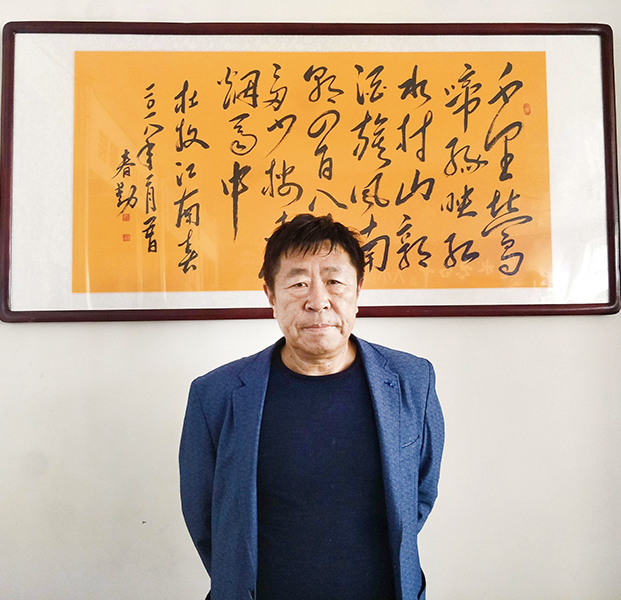 千里鶯
啼绿映红
水村山郭
酒旗风南
朝四百八
多少楼
烟雨中
杜牧江南春
春勤